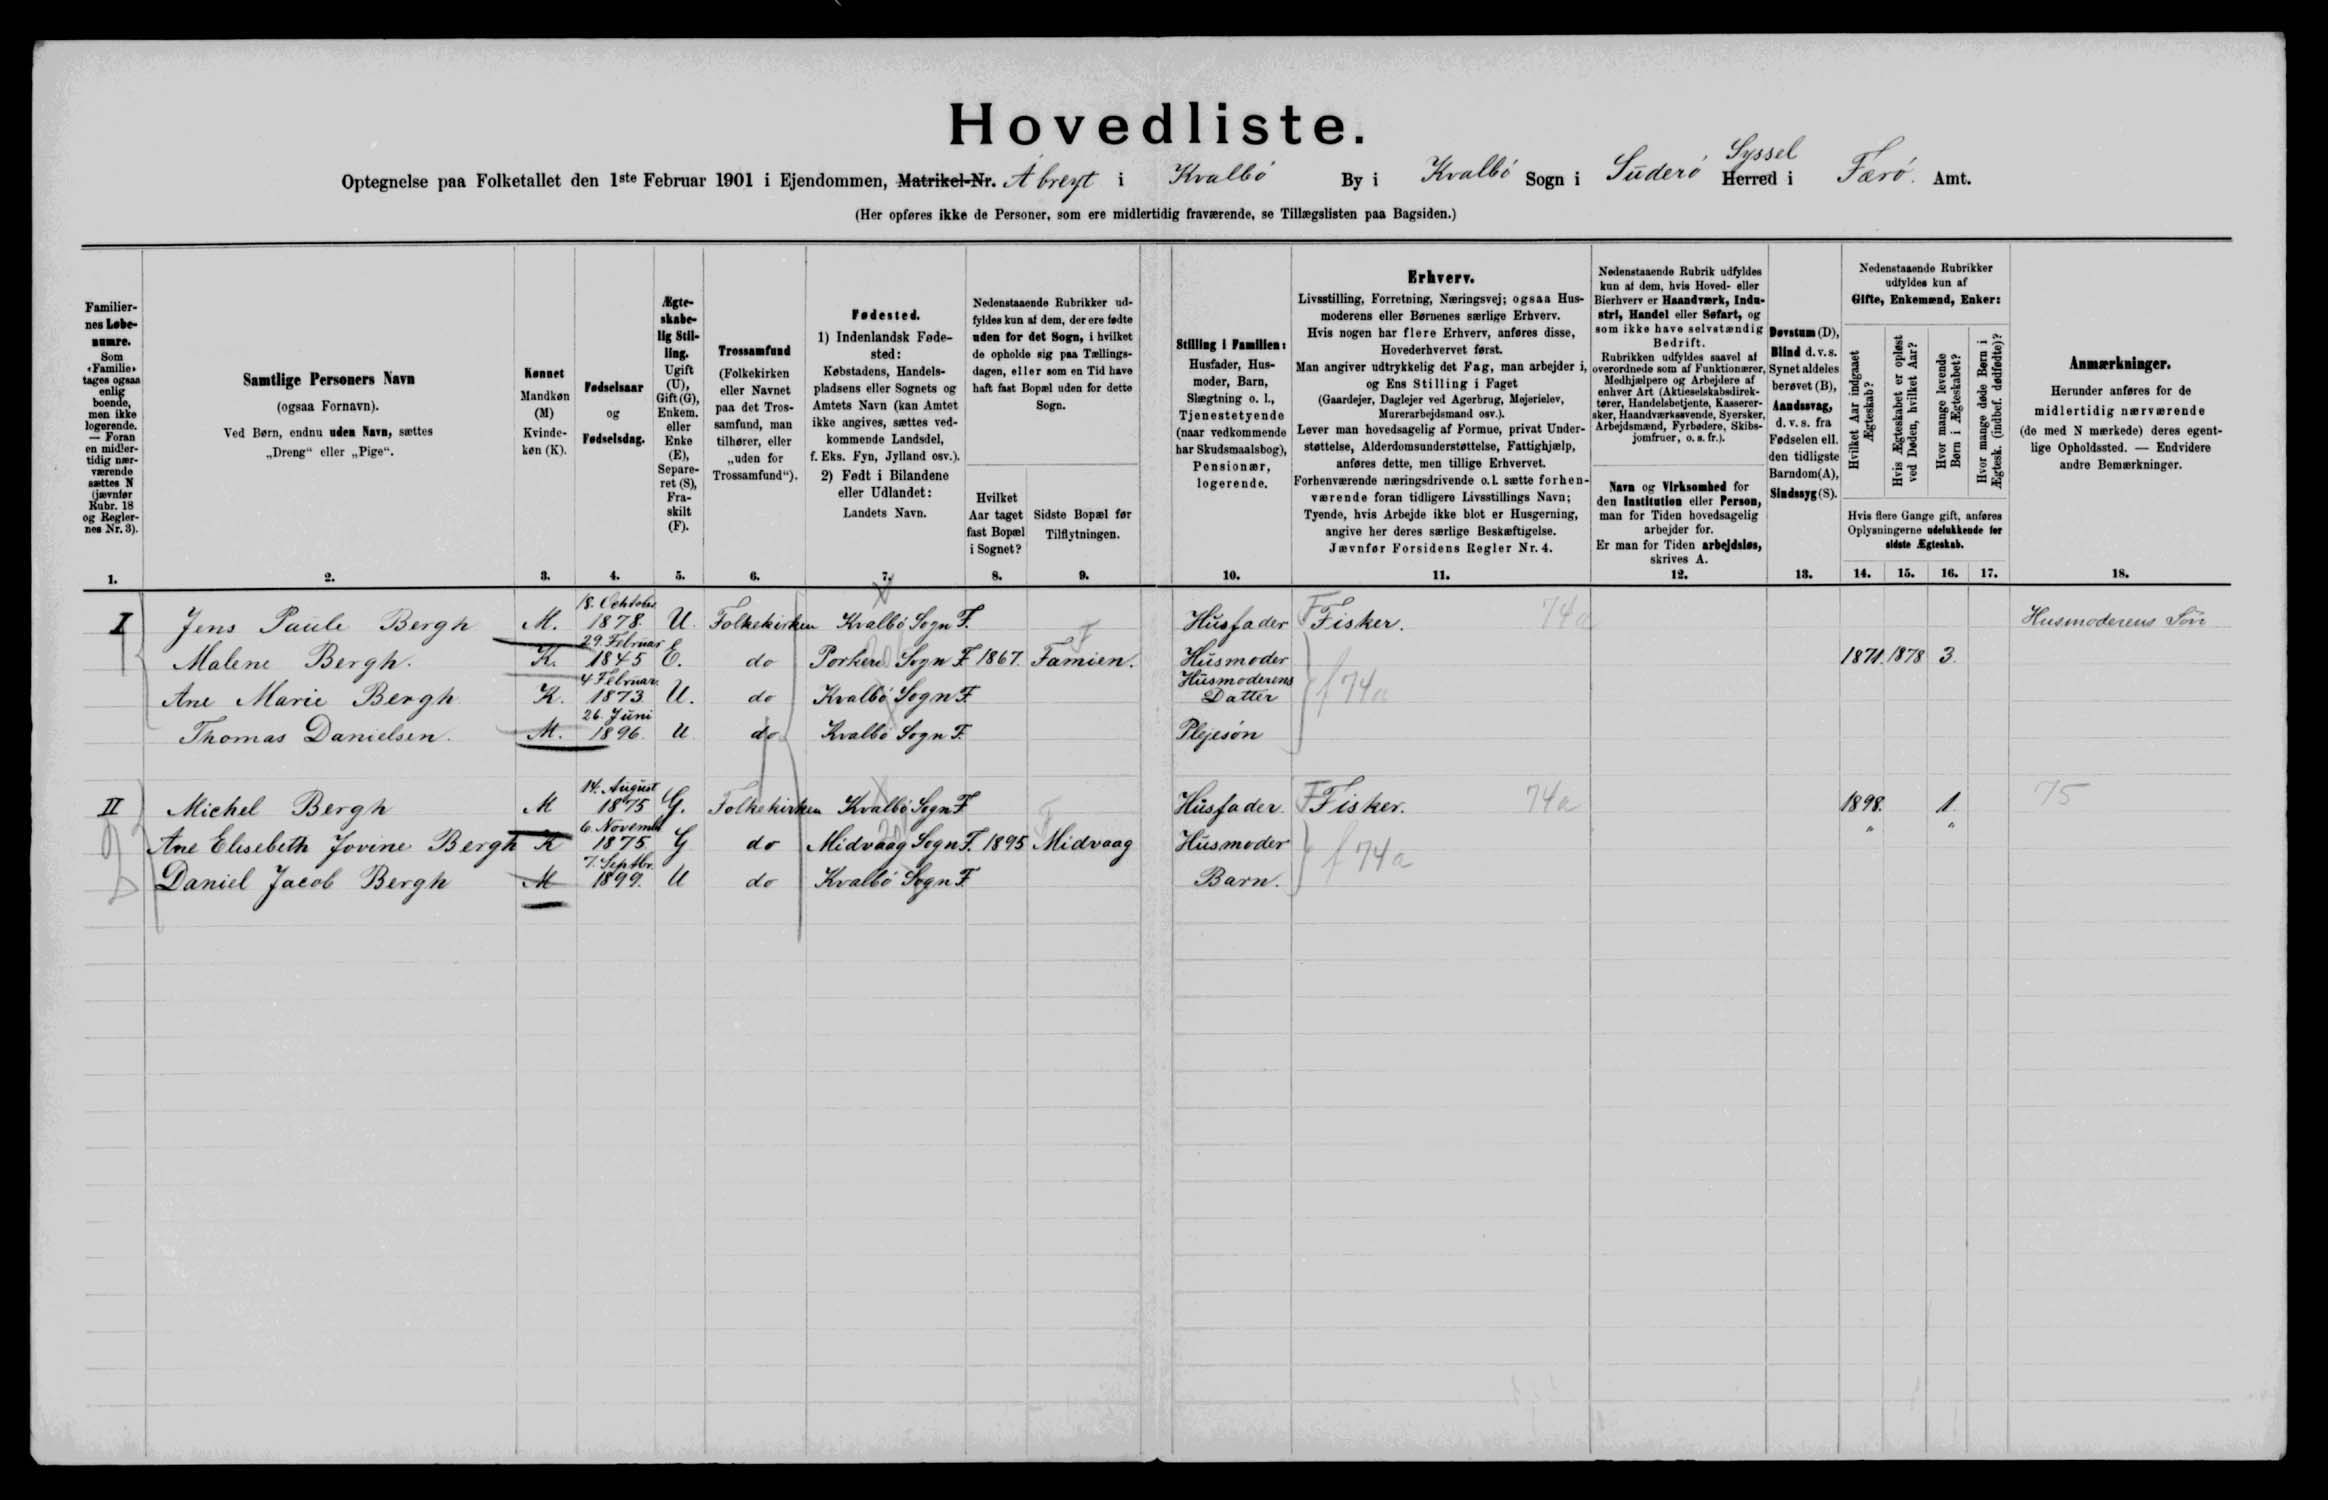 Hovedliste.
Syssel
Optegnelse paa Folketallet den 1ste Februar 1901 i Ejendommen, Matrikel-Nr. Abreyt i Kvalbø By i Kvalbø Sogn i Suderø Herred i Færø. Amt.
(Her opføres ikke de Personer, som ere midlertidig fraværende, se Tillægslisten paa Bagsiden.)
Familier-
nes Løbe-
numre.
Som
«Familie»
tages ogsaa
enlig
boende,
men ikke
logerende.
— Foran
en midler-
tidig nær-
værende
sættes N
(jævnfør
Rubr. 18
og Regler-
nes Nr. 3).
1.
Samtlige Personers Navn
(ogsaa Fornavn).
Ved Børn, endnu uden Navn, sættes
„Dreng“ eller „Pige“.
2.
Kønnet
Mandkøn
(M)
Kvinde-
køn (K).
3.
Fødselsaar
og
Fødselsdag.
4.
Ægte-
skabe-
lig Stil-
ling.
Ugift
(U),
Gift (G),
Enkem.
eller
Enke
(E),
Separe-
ret (S),
Fra-
skilt
(F).
5.
Trossamfund
(Folkekirken
eller Navnet
paa det Tros-
samfund, man
tilhører, eller
„uden for
Trossamfund“).
6.
Fødested.
1) Indenlandsk Føde-
sted:
Købstadens, Handels-
pladsens eller Sognets og
Amtets Navn (kan Amtet
ikke angives, sættes ved-
kommende Landsdel,
f. Eks. Fyn, Jylland osv.).
2) Født i Bilandene
eller Udlandet:
Landets Navn.
7.
Nedenstaaende Rubrikker ud-
fyldes kun af dem, der ere fødte
uden for det Sogn, i hvilket
de opholde sig paa Tællings-
dagen, eller som en Tid have
haft fast Bopæl uden for dette
Sogn.
Hvilket
Aar taget
fast Bopæl
i Sognet?
8.
Sidste Bopæl før
Tilflytningen.
9.
Stilling i Familien:
Husfader, Hus-
moder, Barn,
Slægtning o. l.,
Tjenestetyende
(naar vedkommende
har Skudsmaalsbog),
Pensionær,
logerende.
10.
Erhverv.
Livsstilling, Forretning, Næringsvej; ogsaa Hus-
moderens eller Børnenes særlige Erhverv.
Hvis nogen har flere Erhverv, anføres disse,
Hovederhvervet først.
Man angiver udtrykkelig det Fag, man arbejder i,
og Ens Stilling i Faget
(Gaardejer, Daglejer ved Agerbrug, Mejerielev,
Murerarbejdsmand osv.).
Lever man hovedsagelig af Formue, privat Under-
støttelse, Alderdomsunderstøttelse, Fattighjælp,
anføres dette, men tillige Erhvervet.
Forhenværende næringsdrivende o. l. sætte forhen-
værende foran tidligere Livsstillings Navn;
Tyende, hvis Arbejde ikke blot er Husgerning,
angive her deres særlige Beskæftigelse.
Jævnfør Forsidens Regler Nr. 4.
11.
Nedenstaaende Rubrik udfyldes
kun af dem, hvis Hoved- eller
Bierhverv er Haandværk, Indu-
stri, Handel eller Søfart, og
som ikke have selvstændig
Bedrift.
Rubrikken udfyldes saavel af
overordnede som af Funktionærer,
Medhjælpere og Arbejdere af
enhver Art (Aktieselskabsdirek-
tører, Handelsbetjente, Kasserer-
sker, Haandværkssvende, Syersker,
Arbejdsmænd, Fyrbødere, Skibs-
jomfruer, o. s. fr.).
Navn og Virksomhed for
den Institution eller Person,
man for Tiden hovedsagelig
arbejder for.
Er man for Tiden arbejdsløs,
skrives A.
12.
Døvstum (D),
Blind d. v. s.
Synet aldeles
berøvet (B),
Aandssvag,
d. v. s. fra
Fødselen ell.
den tidligste
Barndom (A),
Sindssyg (S).
13.
Nedenstaaende Rubrikker
udfyldes kun af
Gifte, Enkemænd, Enker:
Hvilket Aar indgaaet
Ægteskab?
Hvis Ægteskabet er opløst
ved Døden, hvilket Aar?
Hvor mange levende
Børn i Ægteskabet?
Hvor mange døde Børn i
Ægtesk. (indbef. dødfødte)?
Hvis flere Gange gift, anføres
Oplysningerne udelukkende for
sidste Ægteskab.
14. 15. 16. 17.
Anmærkninger.
Herunder anføres for de
midlertidig nærværende
(de med N mærkede) deres egent-
lige Opholdssted. — Endvidere
andre Bemærkninger.
18.
I Jens Paule Bergh M. 18. Octobe 1878. U. Folkekirken Kvalbø Sogn F. Husfader F Fisker. 74a Husmoderens Søn
Malene Bergh. K. 29. Februar 1845 E. do Porkere Sogn F 1867. Famien. Husmoder 1871. 1878 3.
Ane Marie Bergh K. 4 Februar. 1873 U. do Kvalbø Sogn F. Husmoderens Datter f 74a
Thomas Danielsen. M. 26. Juni 1896. U do Kvalbø Sogn F. Plejesøn
II Michel Bergh M 14. August 1875 G. Folkekirken Kvalbø Sogn F Husfader. F Fisker. 74a 1898. 1. 75
Ane Elisebeth Jovine Bergh K 6. Novemb 1875. G do Midvaag Sogn F. 1895 Midvaag Husmoder f 74a " "
Daniel Jacob Bergh M 7. Septbr. 1899. U do Kvalbø Sogn F. Barn.